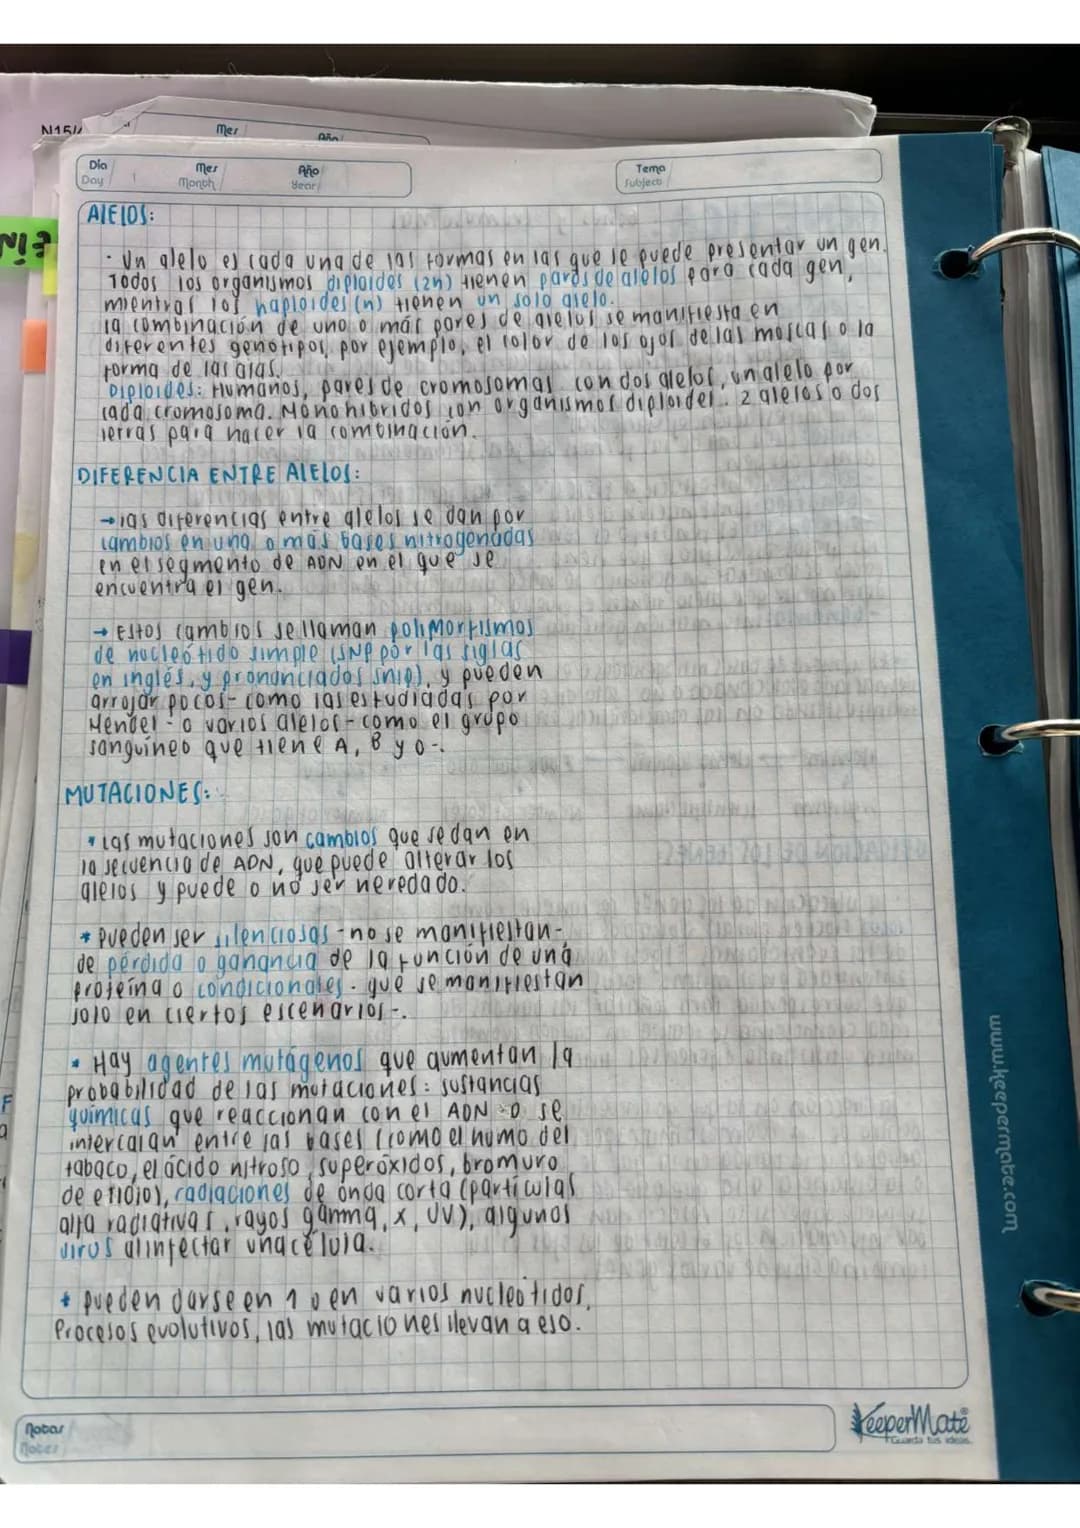 N15/
Mes
Año
Día
Day
Mes
Month
Año
Year
Tema
Subject
AlElOS:
· Un alelo es cada una de las formas en las que se puede presentar un gen.
Todos los organismos diploides (2n) tienen pares de alelos para cada gen,
mientras los haploides (n) tienen un solo alelo.
la combinación de uno o más pares de alelos se manifiesta en
diferentes genotipos, por ejemplo, el color de los ojos de las moscas o la
forma de las alas.
Diploides: Humanos, pares de cromosomas con dos alelos, un alelo por
cada cromosoma. Monohibridos con organismos diploides. 2 alelos o dos
letras para hacer la combinación.
DIFERENCIA ENTRE AlElOS:
→ las diferencias entre alelos se dan por
cambios en una o más bases nitrogenadas
en el segmento de ADN en el que se
encuentra el gen.
→ Estos cambios se llaman polimorfismos
de nucleótido simple (SNP por las siglas
en inglés, y pronunciados snip), y pueden
arrojar pocos - como las estudiadas por
Mendel - o varios alelos - como el grupo
sanguíneo que tiene A, B y O -.
MUTACIONES:
* las mutaciones son cambios que se dan en
la secuencia de ADN, que puede alterar los
alelos y puede o no ser heredado.
* pueden ser silenciosas - no se manifiestan -,
de pérdida o ganancia de la función de una
proteína o condicionales - que se manifiestan
solo en ciertos escenarios -.
* Hay agentes mutágenos que aumentan la
probabilidad de las mutaciones: sustancias
químicas que reaccionan con el ADN o se
intercalan entre las bases (como el humo del
tabaco, el ácido nitroso, superóxidos, bromuro
de etidio), radiaciones de onda corta (partículas
alfa radiativas, rayos gamma, x, UV), algunos
virus al infectar una célula.
* pueden darse en 1 o en varios nucleótidos,
Procesos evolutivos, las mutaciones llevan a eso.
Notas
Notes
KeeperMate®
Guarda tus ideas.
www.keepermate.com